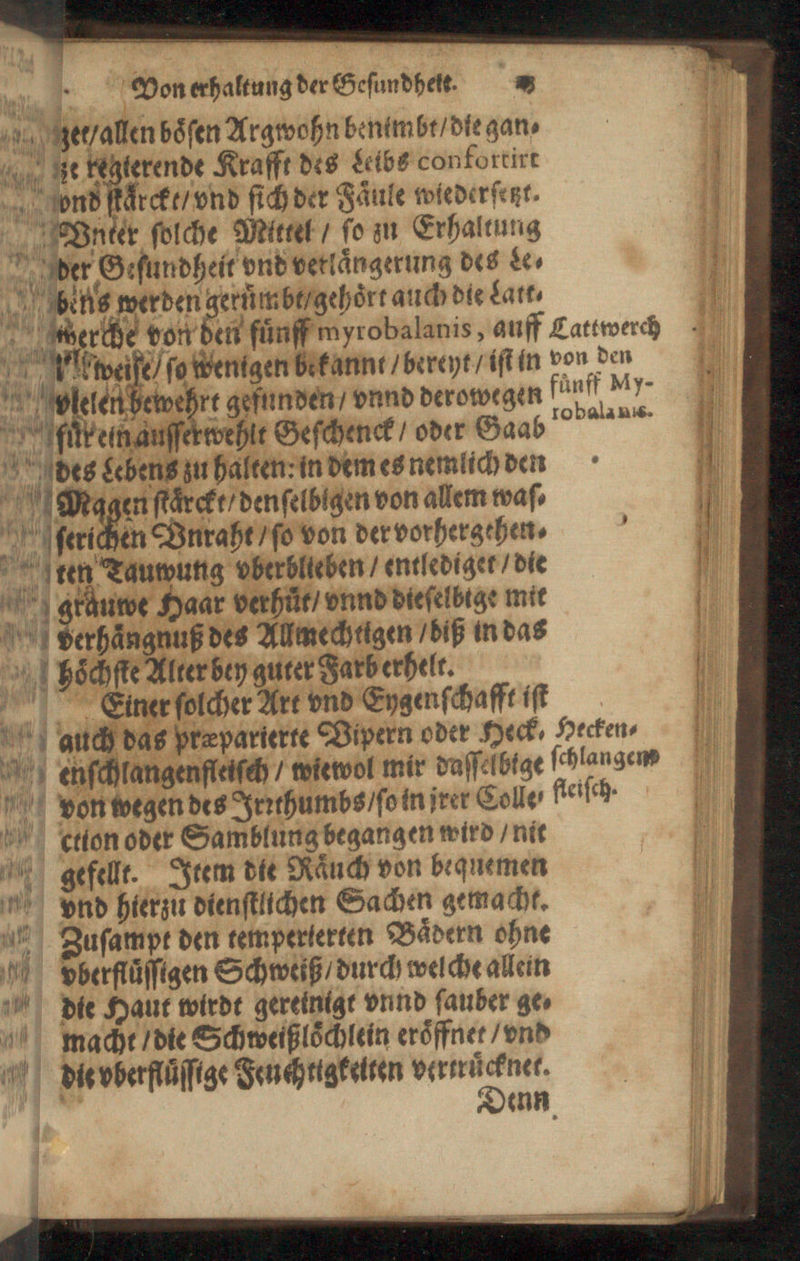 Von erhaltung der Geſundheit.
zet/allen böſen Argwohn benimbt/die gan⸗
ze regierende Krafft des Leibs confortirt
vnd ſtärckt/vnd ſich der Fäule wiederſetzt.
Vnter ſolche Mittel / ſo zu Erhaltung
der Geſundheit vnd verlängerung des Le⸗
bens werden gerümbt/gehört auch die Latt⸗
werche von den fünff myrobalanis, auff
weiſe/ ſo wenigen bekannt /bereyt / iſt in
vielen bewehrt gefunden/ vnnd derowegen
für ein auſſerwehlt Geſchenck / oder Gaab
des Lebens zu halten: in dem es nemlich den
Magen ſtärckt/denſelbigen von allem waſ⸗
ſerichen Vnraht /ſo von der vorhergehen⸗
ten Tauwung vberblieben / entlediget /die
gräuwe Haar verhüt/ vnnd dieſelbige mit
verhängnuß des Allmechtigen /biß in das
höchſte Alter bey guter Farb erhelt.
Einer ſolcher Art vnd Eygenſchafft iſt
auch das præparierte Vipern oder Heck⸗
enſchlangenfleiſch / wiewol mir daſſelbige
von wegen des Irrthumbs/ſo in jrer Colle⸗
ction oder Samblung begangen wird /nit
gefellt. Item die Räuch von bequemen
vnd hierzu dienſtlichen Sachen gemacht.
Zuſampt den temperierten Bädern ohne
vberflüſſigen Schweiß/durch welche allein
die Haut wirdt gereinigt vnnd ſauber ge⸗
macht /die Schweißlöchlein eröffnet /vnd
die vberflüſſige Feuchtigkeiten vertrücknet.
Denn
Lattwerch
von den
fünff My-
robalanis.
Hecken⸗
ſchlangen⸗
fleiſch.